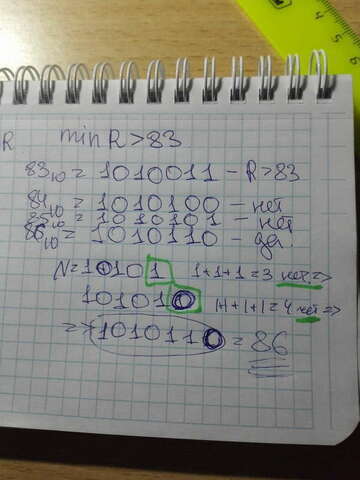 R min R > 83
83₁₀ = 1010011 – R > 83
84₁₀ = 1010100 – нет
85₁₀ = 1010101 – нет
86₁₀ = 1010110 – да.
N = 10101 1+1+1=3 нет =>
101010 1+1+1=4 нет =>
=> 1010110 = 86
4 5 6